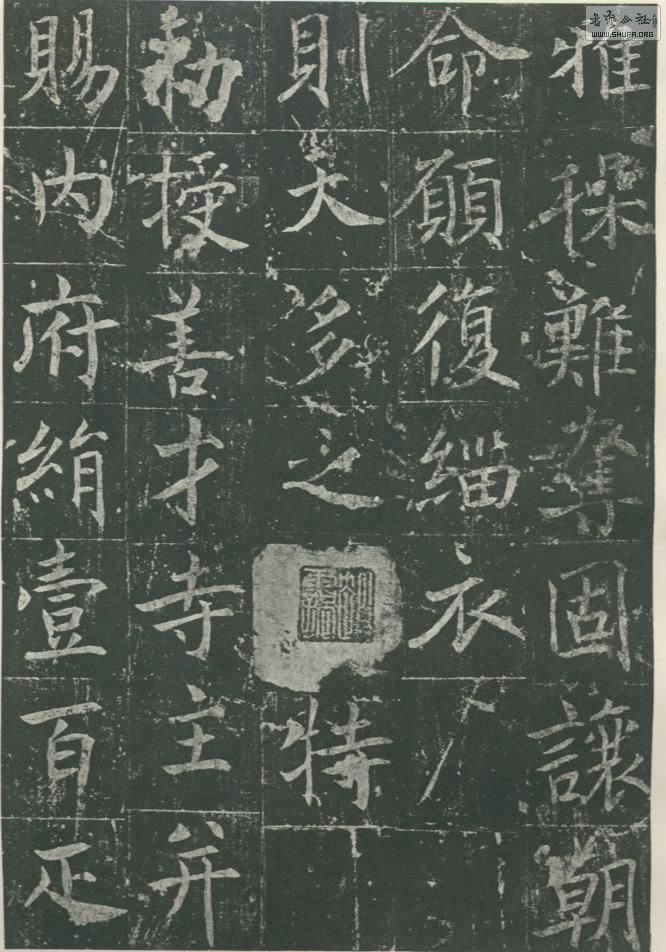 雅操難奪固讓朝
命願復緇衣
則天多之特
勑授善才寺主并
賜内府絹壹百疋
书艺公社
WWW.SHUFA.ORG